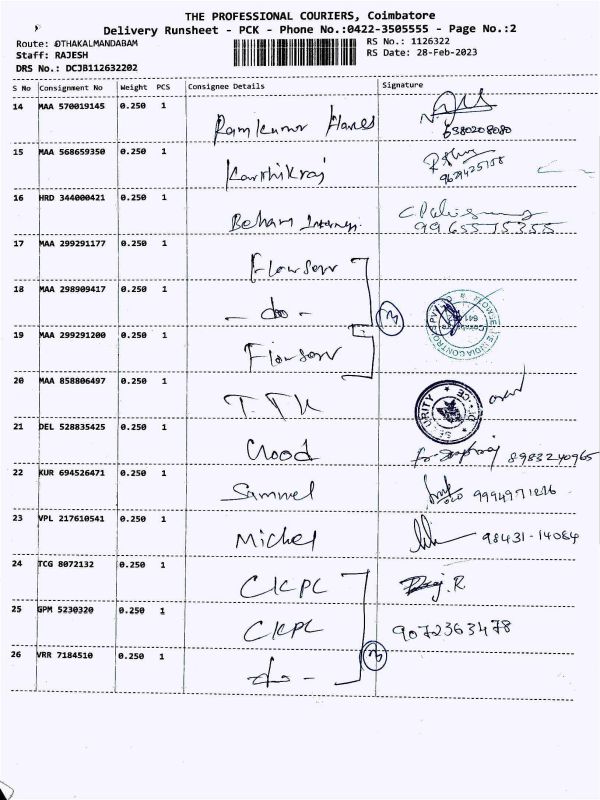 THE PROFESSIONAL COURIERS, Coimbatore
Delivery Runsheet - PCK - Phone No.:0422-3505555 - Page No.:2
Route: OTHAKALMANDABAM
RS No.: 1126322
Staff: RAJESH
RS Date: 28-Feb-2023
DRS No.: DCJB112632202
S No Consignment No Weight PCS Consignee Details Signature
14 MAA 570019145 0.250 1
Ramkumar 6380208080
15 MAA 568659350 0.250 1
Karthikraj 9629425758
16 HRD 344000421 0.250 1
9965575355
17 MAA 299291177 0.250 1
Flowserv
18 MAA 298909417 0.250 1
- do -
3
19 MAA 299291200 0.250 1
Flowserv
20 MAA 858806497 0.250 1
T.TK
SECURITY
21 DEL 528835425 0.250 1
8983240965
22 KUR 694526471 0.250 1
Samuel
23 VPL 217610541 0.250 1
Michel 98431-14084
24 TCG 8072132 0.250 1
CKPC R
25 GPM 5230320 0.250 1
CKPC 9072363478
26 VRR 7184510 0.250 1
- do -
3